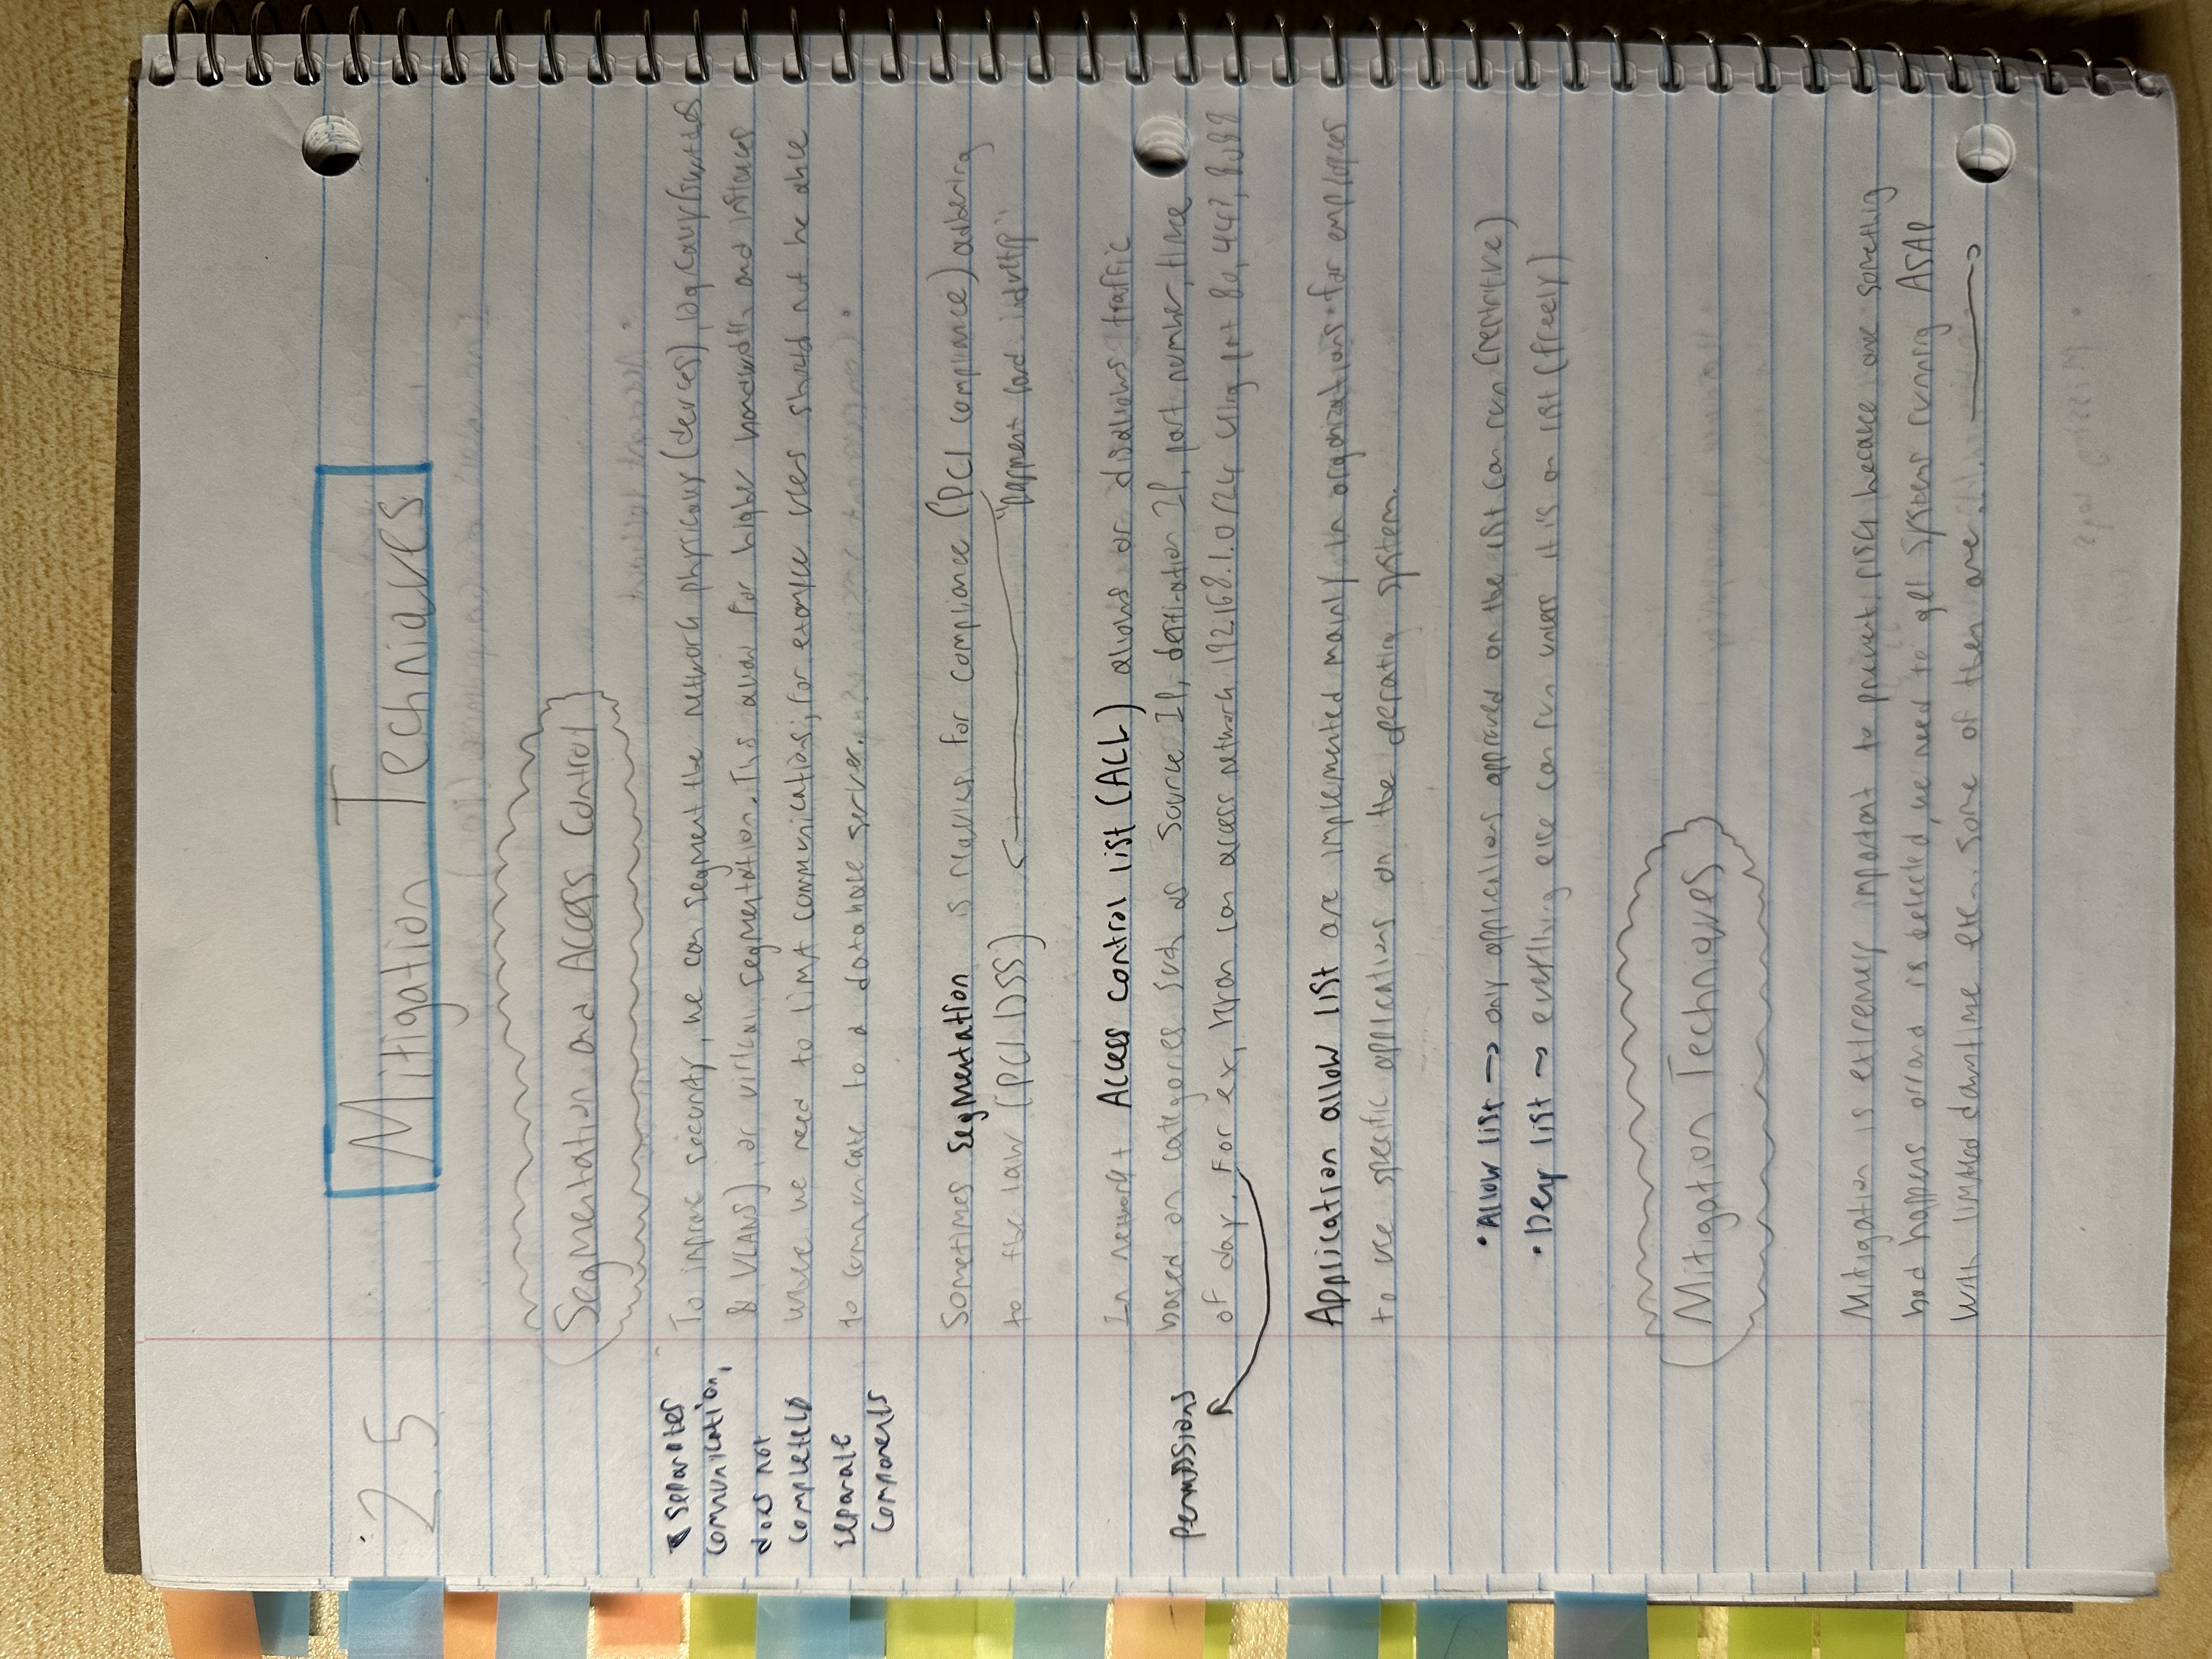 2.5
Mitigation Techniques
Segmentation and Access Control
separates
communication,
does not
completely
separate
components
To improve security, we can segment the network physically (devices), logically (switches
& VLANS), or virtual segmentation. This allow for higher bandwidth and instances
where we need to limit communications; for example users should not be able
to communicate to a database server.
Sometimes Segmentation is required for compliance (PCI compliance) adhering
to the law (PCI DSS)
"Payment card industry"
In network+ Access control list (ACL) allows or disallows traffic
based on categories such as Source IP, destination IP, port number, time
of day. For ex, can access network 192.168.1.0/24 using port 80, 443, 8088
Permissions
Application allow list are implemented mainly in organizations for employees
to use specific applications on the operating system.
• Allow list → only applications approved on the list can run (restrictive)
• Deny list → everything else can run unless it is on list (freely)
Mitigation Techniques
Mitigation is extremely important to prevent risk because one something
bad happens is detected, we need to get systems running ASAP
With limited downtime etc... some of them are... →